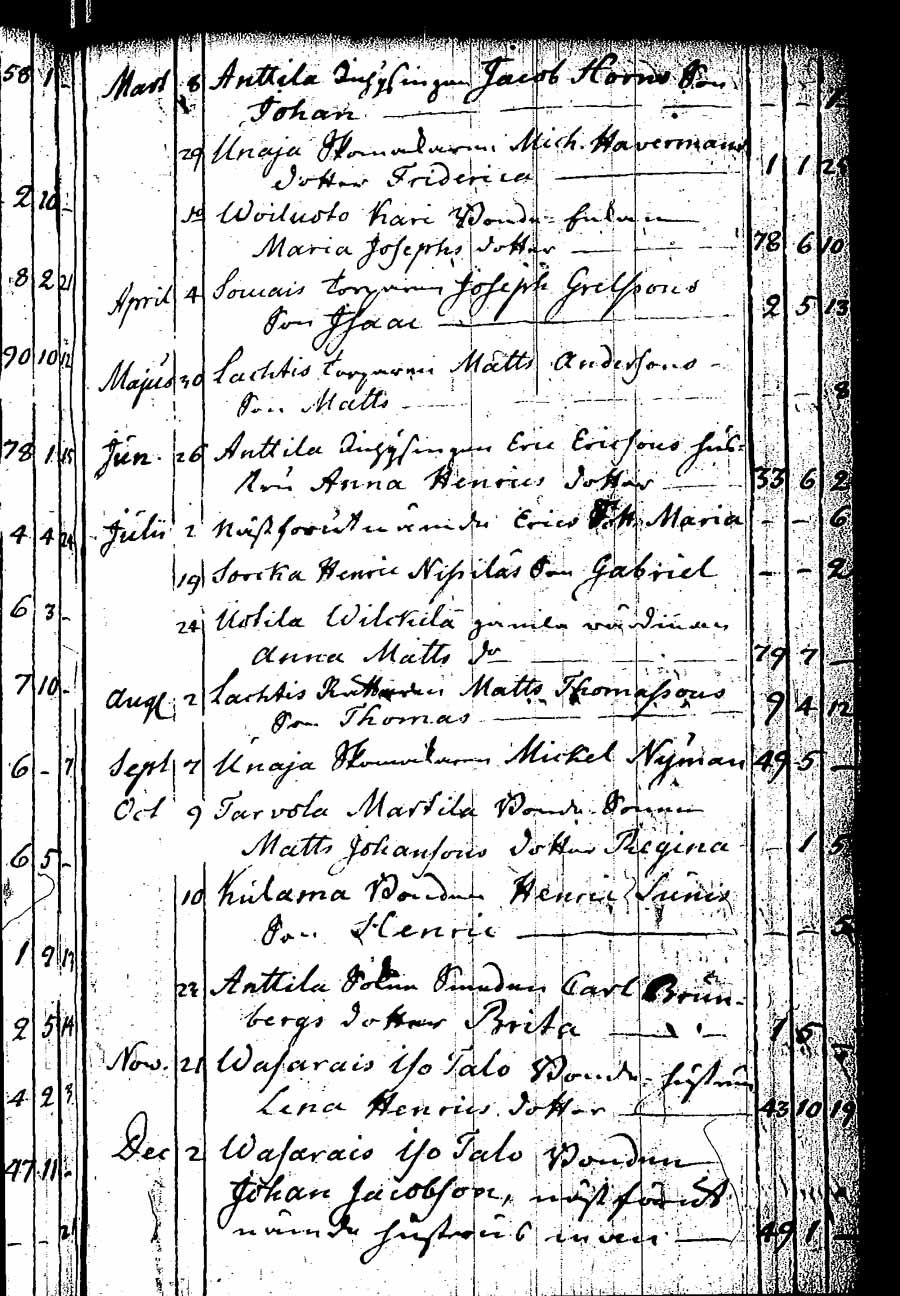 58 1 -
Mart 8 Anttila Inhysingen Jacob Horns Son
Johan - - 1
29 Unaja Skomakaren Mich. Havermans
dotter Friderica 1 1 25
2 10 -
Woiluoto Kari Bonde
Maria Josephs dotter 78 6 10
8 2 21
April 4 Somais torparen Joseph Grelssons
Son Isaac 2 5 13
90 10 12
Majus 30 Lachtis torparen Matts Anderssons
Son Matts - - 8
78 1 15
Jun. 26 Anttila Inhysingen Eric Ericsons hus-
tru Anna Henrics dotter 33 6 2
4 4 24
Julii 2 näst förutnämde Erics Dott. Maria - - 6
19 Sorcka Henric Nissiläs Son Gabriel - - 2
6 3 -
24 Uotila Wilckilä gamla wärdinnan
Anna Matts do 79 7 -
7 10 -
Aug 2 Lachtis Matts Thomassons
Son Thomas 9 4 12
6 - 7
Sept 7 Unaja Skomakaren Mickel Nyman 49 5 -
Oct 9 Tarvola Martila Bonde Sonen
Matts Johansons dotter Regina - 1 5
6 5 -
10 Kulama Bonden Henric Sunis
Son Henric - - 5
1 9 13
23 Anttila Smeden Carl Brun-
bergs dotter Brita 1 5
2 5 14
Nov. 21 Wasarais Iso Talo Bonde hustrun
Lena Henrics dotter 43 10 19
4 2 3
Dec 2 Wasarais Iso Talo Bonden
47 11 -
Johan Jacobson, näst förut
nämde hustrus man 49 1 -
- - 21